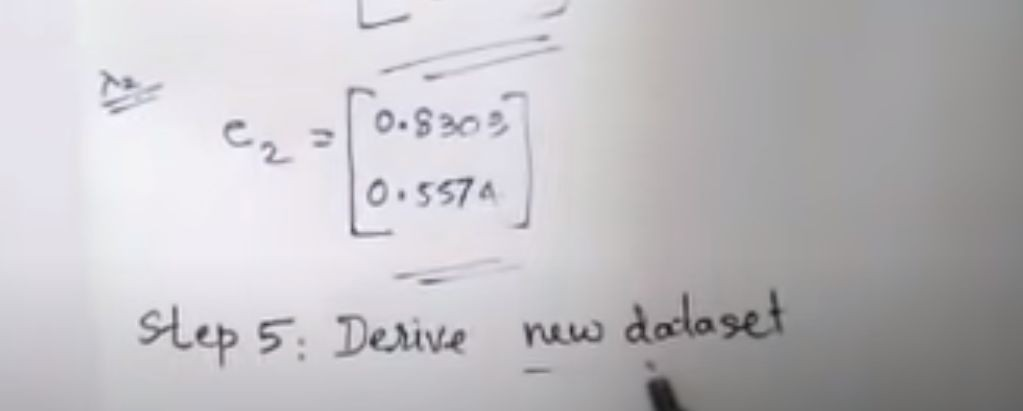 λ2
e2 = [0.8303
0.5574]
Step 5: Derive new dataset